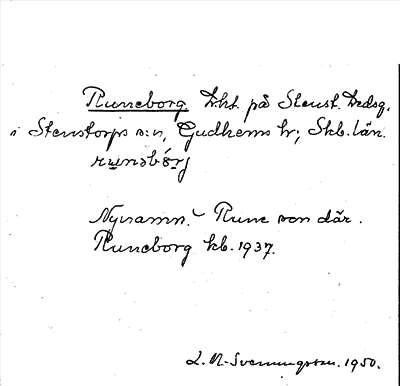 Runeborg lht. på Stenst. Prdsg.
i Stenstorps s:n, Gudhems hr, Skb. län.
runәbórj
Nynamn. Rune son där.
Runeborg kb. 1937.
L. M-Svenungsson. 1950.